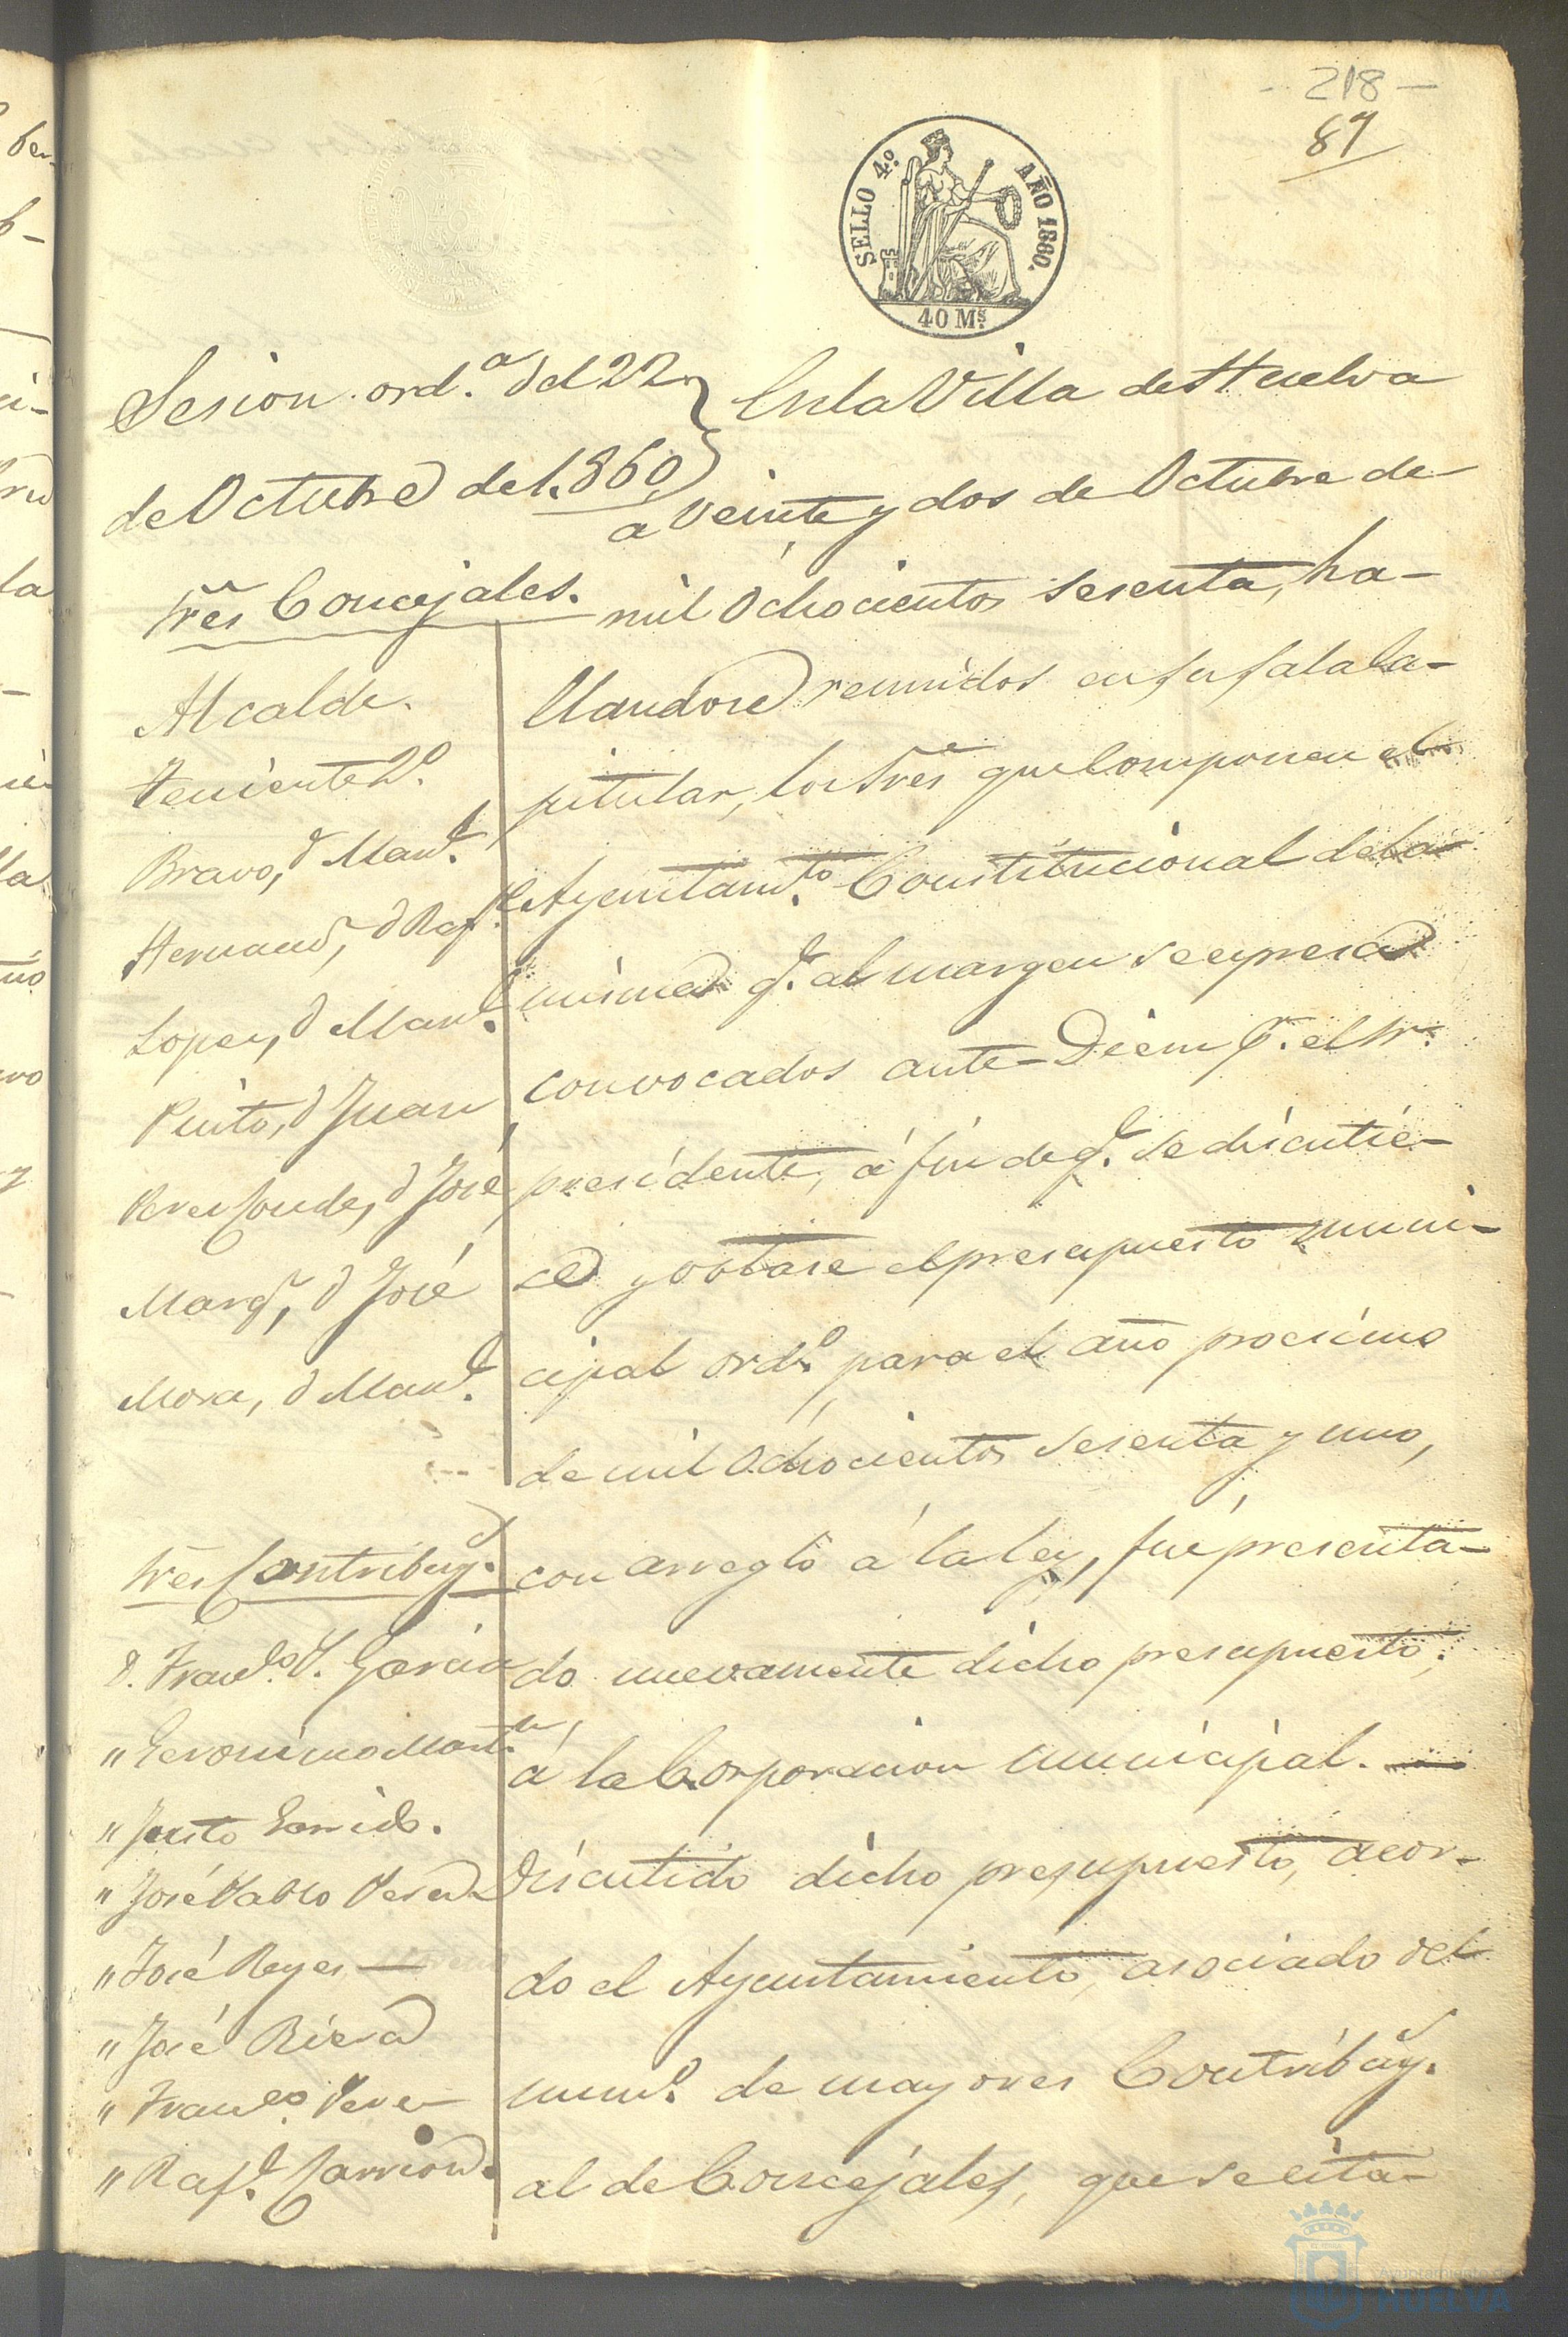 - 218 -
87
SELLO 4º AÑO 1860.
40 Ms.
Sesion ord.a del 22
de Octubre de 1.860
Sres Concejales.
Alcalde.
Teniente 2º.
Bravo, d Manl.
Hernandz, d Rafl.
Lopez, d Manl.
Pinto, d Juan
Perez Conde, d José
Marqz, d José
Mora, d Manl.
Sres Contribuys.
D. Franco. V. Garcia
" Geronimo Martn.
" Justo Garrido.
" José Pablo Perez
" José Reyes
" José Riera
" Franco. Perez
" Rafl. Carrion.
En la Villa de Huelva
a veinte y dos de Octubre de
mil Ochocientos sesenta, ha-
llandose reunidos en su sala ca-
pitular, los Sres que componen el
Ayuntamto. Constitucional de la
misma qe. al margen se espresa
convocados ante-Diem pr. el Sr.
presidente, á fin de qe. se dicutie-
se y votase el presupuesto muni-
cipal ordo. para el año procsimo
de mil Ochocientos sesenta y uno,
con arreglo á la ley, fué presenta-
do nuevamente dicho presupuesto,
á la Corporacion municipal.
Discutido dicho presupuesto, acor-
do el Ayuntamiento, asociado del
numo. de mayores Contribuys.
al de Concejales, que se cita-
Ayuntamiento de
HUELVA